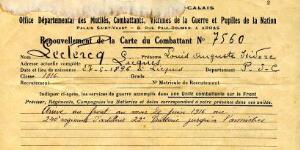 -CALAIS
Office Départemental des Mutilés, Combattants, Victimes de la Guerre et Pupilles de la Nation
PALAIS SAINT-VAAST - 8, RUE PAUL-DOUMER, à ARRAS
Renouvellement de la Carte du Combattant N° 7560
Leclercq Prénoms Louis Auguste Isidore
Adresse actuelle complète Licques
Date et lieu de naissance 1896 à Licques Département P-d-C
Classe 1916
Grade N° Matricule de Recrutement
Indiquer ci-après, les services de guerre accomplis dans une Unité combattante sur le Front
Préciser, Régiments, Compagnies ou Batteries et dates correspondant à votre présence dans ces unités.
Arrivé au front au mois de juin 1916 au
régiment d'artillerie 22e Batterie jusqu'à l'armistice